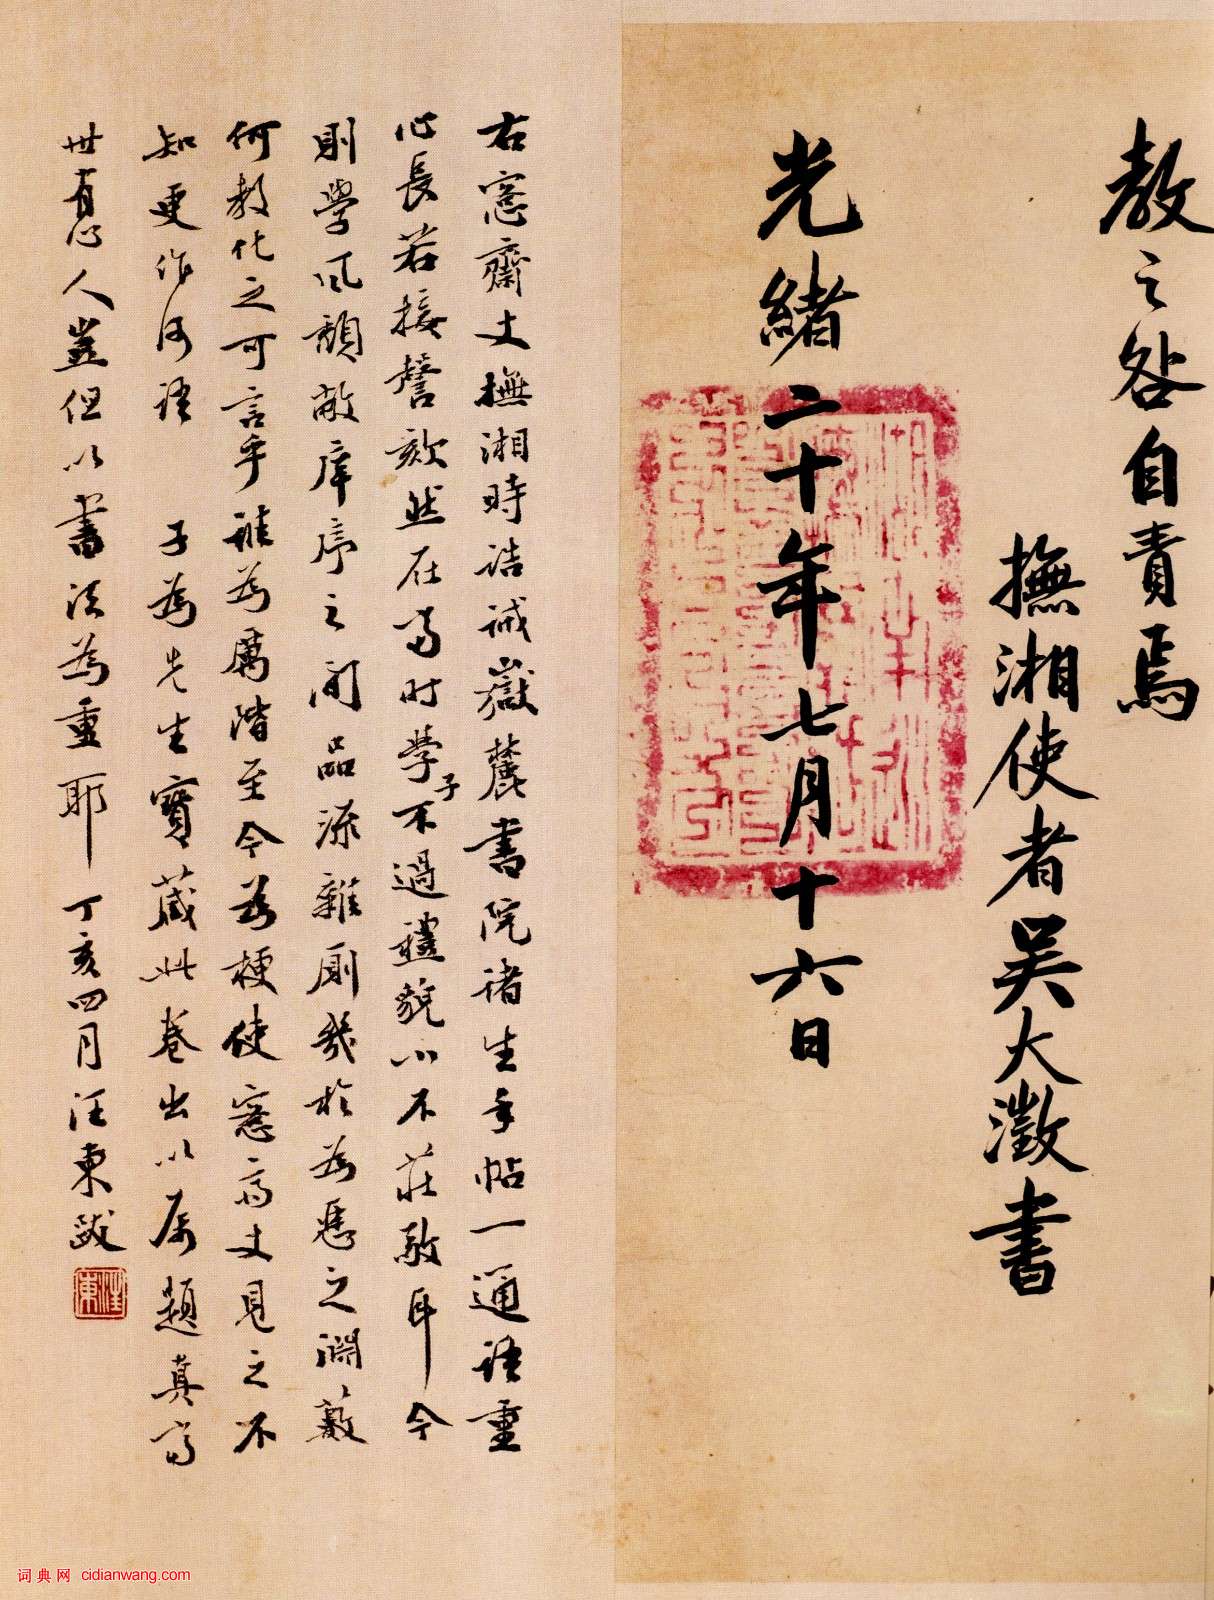 教之咎自責焉
撫湘使者吳大澂書
光緒二十年七月十六日
右窓齋丈撫湘時誥誡嶽麓書院諸生手帖一通語重
心長若接謦欬然在當时學子不過禮貌小不莊敬耳今
則學风頹敝庠序之间品流雜厠幾於為惡之淵藪
何教化之可言乎誰為厲階至今為梗使窓齋丈見之不
知更作何語 子為先生寶藏此卷出以属題真當
世有心人豈但以書法為重耶 丁亥四月汪東跋
汪東
词典网 cidianwang.com